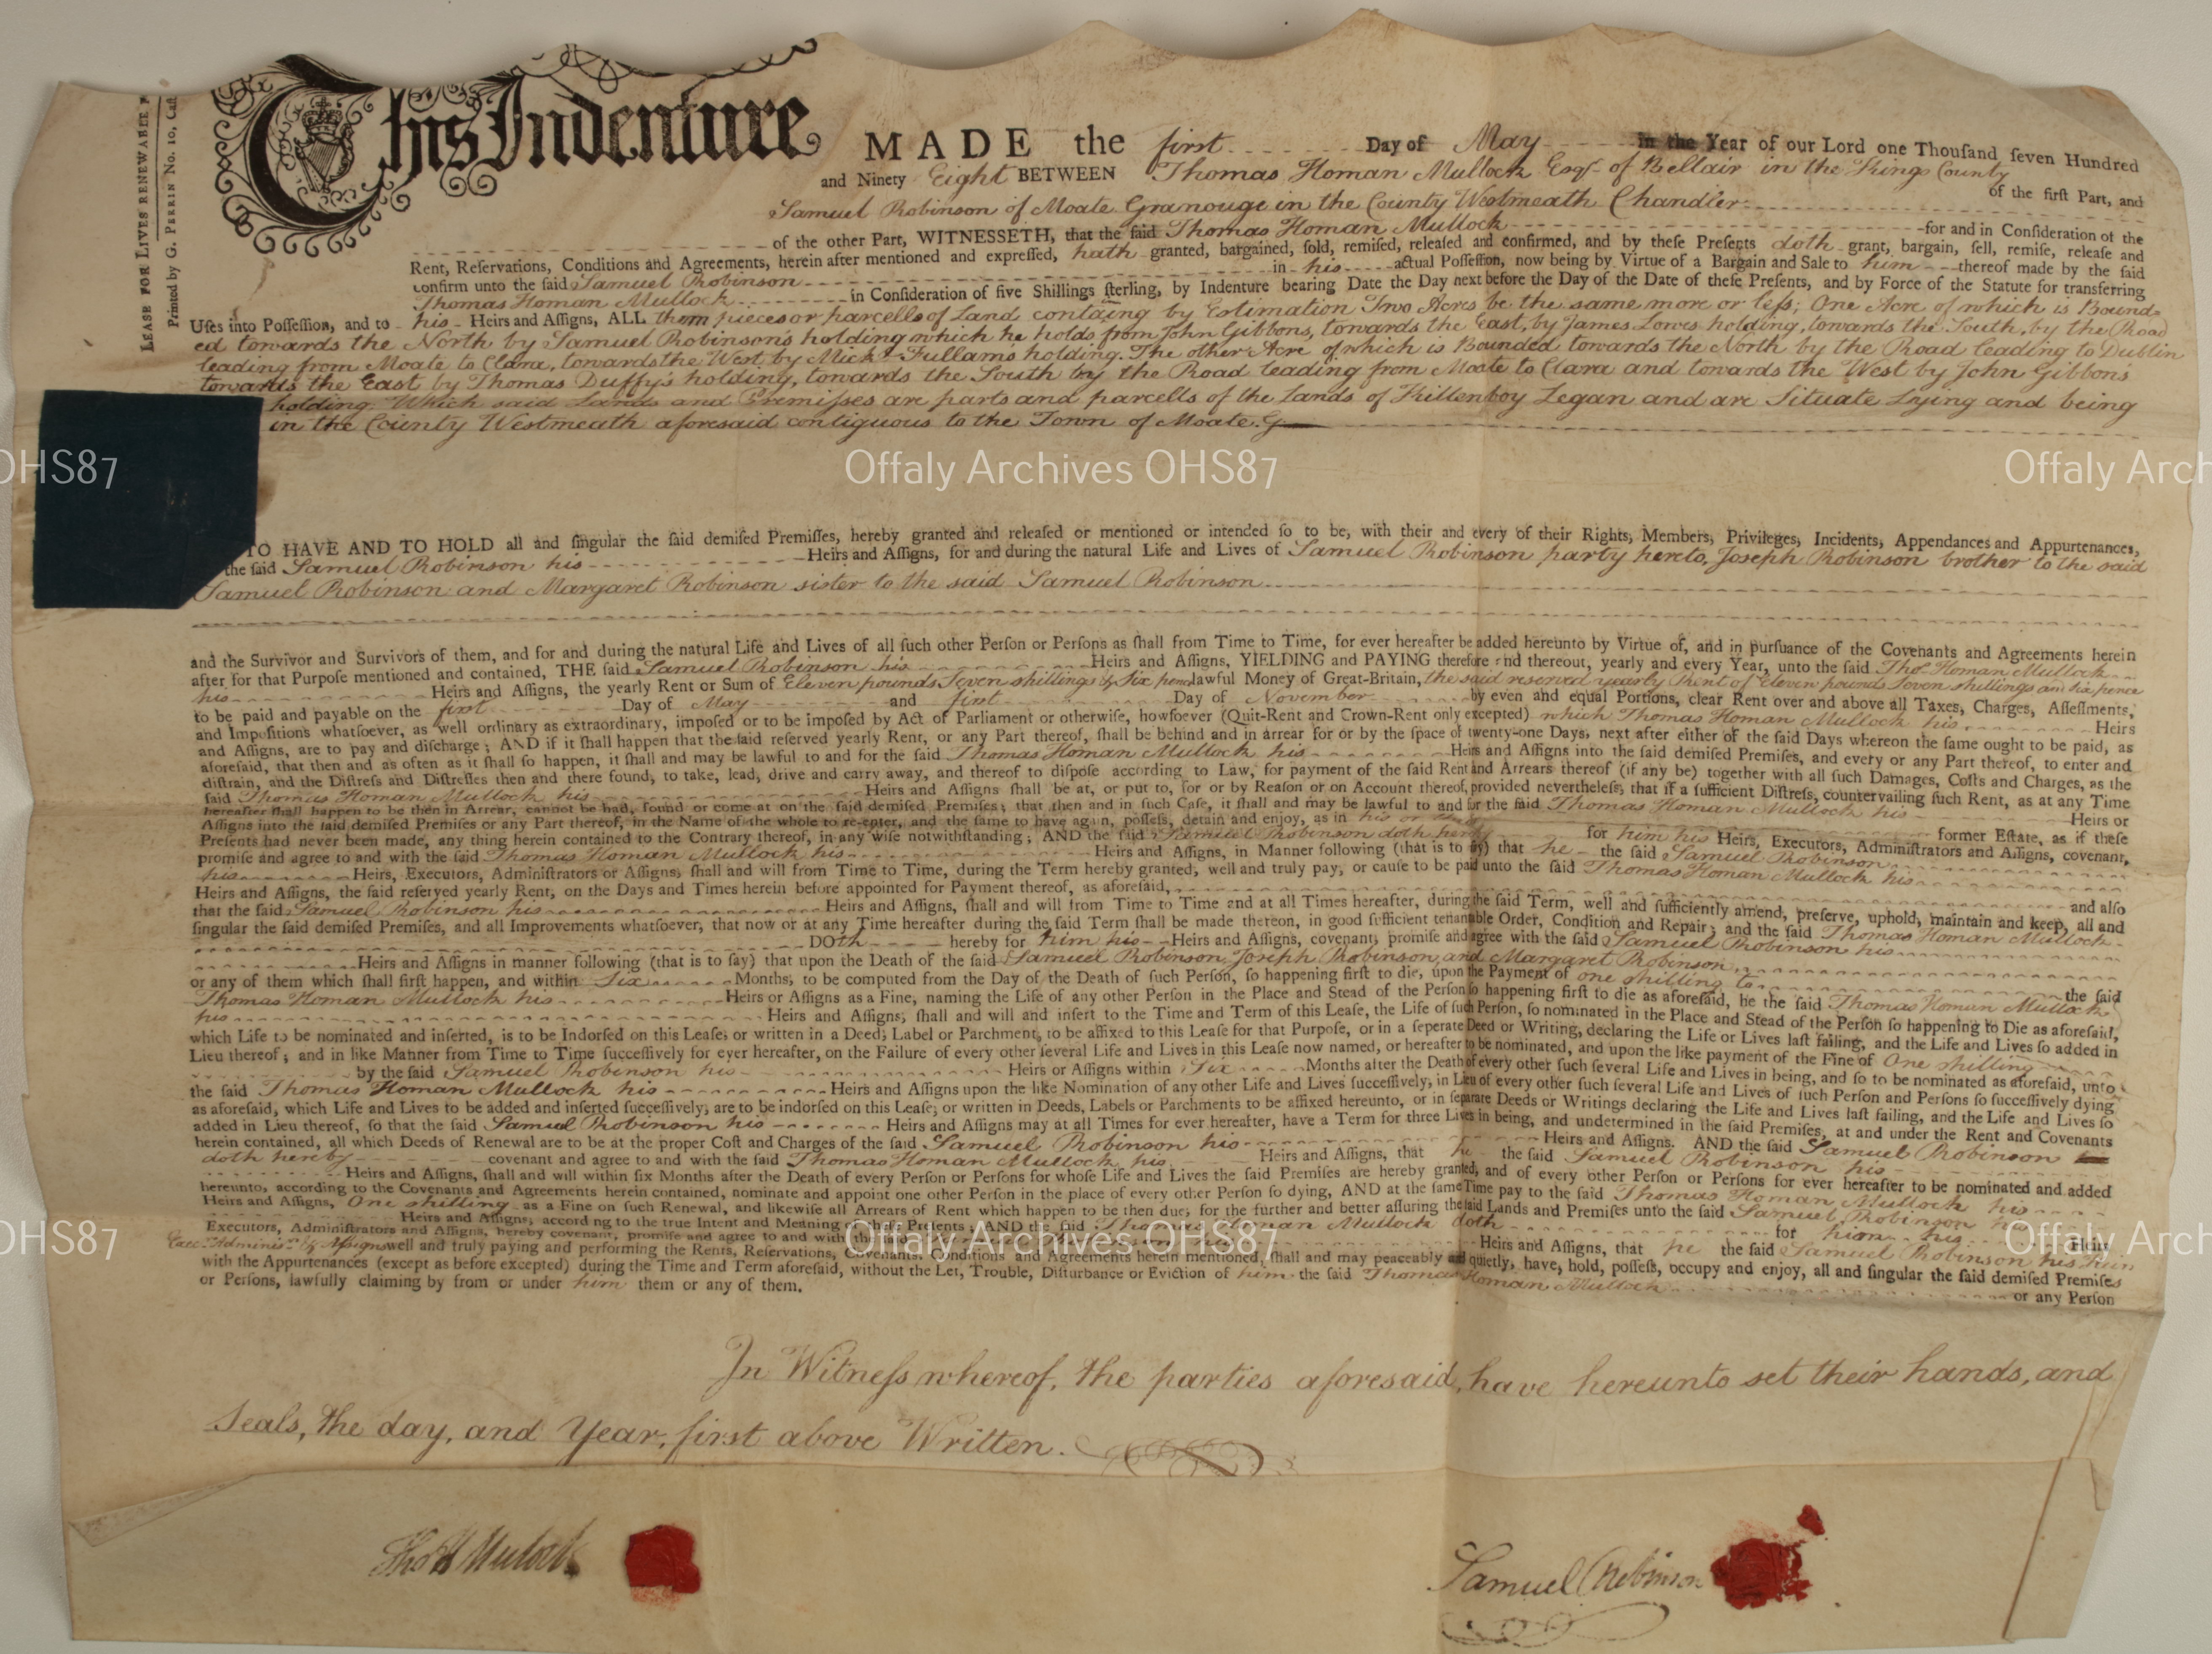 LEASE FOR LIVES RENEWABLE
Printed by G. PERRIN No. 10, Cast
This Indenture MADE the first Day of May in the Year of our Lord one Thouſand ſeven Hundred
and Ninety Eight BETWEEN Thomas Homan Mullock Esqr. of Bellair in the Kings County of the firſt Part, and
Samuel Robinson of Moate Granouge in the County Westmeath Chandler
of the other Part, WITNESSETH, that the ſaid Thomas Homan Mullock for and in Conſideration of the
Rent, Reſervations, Conditions and Agreements, herein after mentioned and expreſſed, hath granted, bargained, ſold, remiſed, releaſed and confirmed, and by theſe Preſents doth grant, bargain, ſell, remiſe, releaſe and
confirm unto the ſaid Samuel Robinson in his actual Poſſeſſion, now being by Virtue of a Bargain and Sale to him thereof made by the ſaid
Thomas Homan Mullock in Conſideration of five Shillings ſterling, by Indenture bearing Date the Day next before the Day of the Date of theſe Preſents, and by Force of the Statute for transferring
Uſes into Poſſeſſion, and to his Heirs and Aſſigns, ALL them pieces or parcells of Land containg by Estimation Two Acres be the same more or leſs; One Acre of which is Bound=
ed towards the North by Samuel Robinson's holding which he holds from John Gibbons, towards the East, by James Lowes holding, towards the South, by the Road
leading from Moate to Clara, towards the West by Mick. Fullams holding. The other Acre of which is Bounded towards the North by the Road leading to Dublin
towards the East by Thomas Duffy's holding, towards the South by the Road leading from Moate to Clara and towards the West by John Gibbon's
holding. Which said Lands and Premiſses are parts and parcells of the Lands of Killenboy Legan and are Situate Lying and being
in the County Westmeath aforesaid contiguous to the Town of Moate. G
OHS87 Offaly Archives OHS87 Offaly Arch
TO HAVE AND TO HOLD all and ſingular the ſaid demiſed Premiſſes, hereby granted and releaſed or mentioned or intended ſo to be, with their and every of their Rights, Members, Privileges, Incidents, Appendances and Appurtenances,
the ſaid Samuel Robinson his Heirs and Aſſigns, for and during the natural Life and Lives of Samuel Robinson party hereto, Joseph Robinson brother to the said
Samuel Robinson and Margaret Robinson sister to the said Samuel Robinson
and the Survivor and Survivors of them, and for and during the natural Life and Lives of all ſuch other Perſon or Perſons as ſhall from Time to Time, for ever hereafter be added hereunto by Virtue of, and in purſuance of the Covenants and Agreements herein
after for that Purpoſe mentioned and contained, THE ſaid Samuel Robinson his Heirs and Aſſigns, YIELDING and PAYING therefore and thereout, yearly and every Year, unto the ſaid Thos. Homan Mullock
his Heirs and Aſſigns, the yearly Rent or Sum of Eleven pounds Seven shillings & Six pence lawful Money of Great-Britain, the said reserved yearly Rent of Eleven pounds Seven shillings and six pence
to be paid and payable on the first Day of May and first Day of November by even and equal Portions, clear Rent over and above all Taxes, Charges, Aſſeſſments,
and Impoſitions whatſoever, as well ordinary as extraordinary, impoſed or to be impoſed by Act of Parliament or otherwiſe, howſoever (Quit-Rent and Crown-Rent only excepted) which Thomas Homan Mullock his Heirs
and Aſſigns, are to pay and diſcharge; AND if it ſhall happen that the ſaid reſerved yearly Rent, or any Part thereof, ſhall be behind and in arrear for or by the ſpace of twenty-one Days, next after either of the ſaid Days whereon the ſame ought to be paid, as
aforeſaid, that then and as often as it ſhall ſo happen, it ſhall and may be lawful to and for the ſaid Thomas Homan Mullock his Heirs and Aſſigns into the ſaid demiſed Premiſes, and every or any Part thereof, to enter and
diſtrain, and the Diſtreſs and Diſtreſſes then and there found, to take, lead, drive and carry away, and thereof to diſpoſe according to Law, for payment of the ſaid Rent and Arrears thereof (if any be) together with all ſuch Damages, Coſts and Charges, as the
ſaid Thomas Homan Mullock his Heirs and Aſſigns ſhall be at, or put to, for or by Reaſon or on Account thereof, provided nevertheleſs, that if a ſufficient Diſtreſs, countervailing ſuch Rent, as at any Time
hereafter ſhall happen to be then in Arrear, cannot be had, found or come at on the ſaid demiſed Premiſes; that then and in ſuch Caſe, it ſhall and may be lawful to and for the ſaid Thomas Homan Mullock his Heirs or
Aſſigns into the ſaid demiſed Premiſes or any Part thereof, in the Name of the whole to re-enter, and the ſame to have again, poſſeſs, detain and enjoy, as in his or former Eſtate, as if theſe
Preſents had never been made, any thing herein contained to the Contrary thereof, in any wiſe notwithſtanding; AND the ſaid Samuel Robinson doth hereby for him his Heirs, Executors, Adminiſtrators and Aſſigns, covenant,
promiſe and agree to and with the ſaid Thomas Homan Mullock his Heirs and Aſſigns, in Manner following (that is to ſay) that he the ſaid Samuel Robinson
his Heirs, Executors, Adminiſtrators or Aſſigns, ſhall and will from Time to Time, during the Term hereby granted, well and truly pay, or cauſe to be paid unto the ſaid Thomas Homan Mullock his
Heirs and Aſſigns, the ſaid reſerved yearly Rent, on the Days and Times herein before appointed for Payment thereof, as aforeſaid, and alſo
that the ſaid Samuel Robinson his Heirs and Aſſigns, ſhall and will from Time to Time and at all Times hereafter, during the ſaid Term, well and ſufficiently amend, preſerve, uphold, maintain and keep, all and
ſingular the ſaid demiſed Premiſes, and all Improvements whatſoever, that now or at any Time hereafter during the ſaid Term ſhall be made thereon, in good ſufficient tenantable Order, Condition and Repair; and the ſaid Thomas Homan Mullock
DOth hereby for him his Heirs and Aſſigns, covenant, promiſe and agree with the ſaid Samuel Robinson his
Heirs and Aſſigns in manner following (that is to ſay) that upon the Death of the ſaid Samuel Robinson, Joseph Robinson, and Margaret Robinson
or any of them which ſhall firſt happen, and within Six Months, to be computed from the Day of the Death of ſuch Perſon, ſo happening firſt to die, upon the Payment of one shilling to the ſaid
Thomas Homan Mullock his Heirs or Aſſigns as a Fine, naming the Life of any other Perſon in the Place and Stead of the Perſon ſo happening firſt to die as aforeſaid, he the ſaid Thomas Homan Mullock
his Heirs and Aſſigns, ſhall and will and inſert to the Time and Term of this Leaſe, the Life of ſuch Perſon, ſo nominated in the Place and Stead of the Perſon ſo happening to Die as aforeſaid,
which Life to be nominated and inſerted, is to be Indorſed on this Leaſe, or written in a Deed, Label or Parchment, to be affixed to this Leaſe for that Purpoſe, or in a ſeperate Deed or Writing, declaring the Life or Lives laſt failing, and the Life and Lives ſo added in
Lieu thereof; and in like Manner from Time to Time ſucceſſively for ever hereafter, on the Failure of every other ſeveral Life and Lives in this Leaſe now named, or hereafter to be nominated, and upon the like payment of the Fine of One shilling
by the ſaid Samuel Robinson his Heirs or Aſſigns within Six Months after the Death of every other ſuch ſeveral Life and Lives in being, and ſo to be nominated as aforeſaid, unto
the ſaid Thomas Homan Mullock his Heirs and Aſſigns upon the like Nomination of any other Life and Lives ſucceſſively, in Lieu of every other ſuch ſeveral Life and Lives of ſuch Perſon and Perſons ſo ſucceſſively dying
as aforeſaid, which Life and Lives to be added and inſerted ſucceſſively, are to be indorſed on this Leaſe, or written in Deeds, Labels or Parchments to be affixed hereunto, or in ſeparate Deeds or Writings declaring the Life and Lives laſt failing, and the Life and Lives ſo
added in Lieu thereof, ſo that the ſaid Samuel Robinson his Heirs and Aſſigns may at all Times for ever hereafter, have a Term for three Lives in being, and undetermined in the ſaid Premiſes, at and under the Rent and Covenants
herein contained, all which Deeds of Renewal are to be at the proper Coſt and Charges of the ſaid Samuel Robinson his Heirs and Aſſigns. AND the ſaid Samuel Robinson
doth hereby covenant and agree to and with the ſaid Thomas Homan Mullock his Heirs and Aſſigns, that he the ſaid Samuel Robinson his
Heirs and Aſſigns, ſhall and will within ſix Months after the Death of every Perſon or Perſons for whoſe Life and Lives the ſaid Premiſes are hereby granted, and of every other Perſon or Perſons for ever hereafter to be nominated and added
hereunto, according to the Covenants and Agreements herein contained, nominate and appoint one other Perſon in the place of every other Perſon ſo dying, AND at the ſame Time pay to the ſaid Thomas Homan Mullock his
Heirs and Aſſigns, One shilling as a Fine on ſuch Renewal, and likewiſe all Arrears of Rent which happen to be then due; for the further and better aſſuring the ſaid Lands and Premiſes unto the ſaid Samuel Robinson his
Heirs and Aſſigns, according to the true Intent and Meaning of theſe Preſents; AND the ſaid Thomas Homan Mullock doth for him his Heirs
Executors, Adminiſtrators and Aſſigns, hereby covenant, promiſe and agree to and with the Heirs and Aſſigns, that he the ſaid Samuel Robinson his Heirs
Exec. Adminis. & Aſsigns well and truly paying and performing the Rents, Reſervations, Covenants, Conditions and Agreements herein mentioned, ſhall and may peaceably and quietly, have, hold, poſſeſs, occupy and enjoy, all and ſingular the ſaid demiſed Premiſes
with the Appurtenances (except as before excepted) during the Time and Term aforeſaid, without the Let, Trouble, Diſturbance or Eviction of him the ſaid Thomas Homan Mullock or any Perſon
or Perſons, lawfully claiming by from or under him them or any of them.
OHS87 Offaly Archives OHS87 Offaly Arch
In Witneſs whereof, the parties aforesaid, have hereunto set their hands, and
Seals, the day, and Year, first above Written.
Thos H Mulock
Samuel Robinson